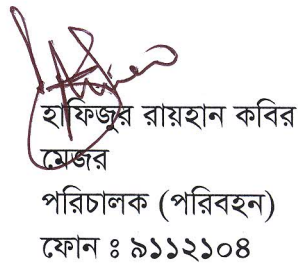 হাফিজুর রায়হান কবির
মেজর
পরিচালক (পরিবহন)
ফোন ঃ ৯১১২১০৪